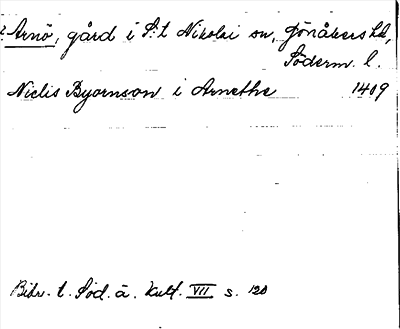 ? Arnö, gård i S:t Nikolai sn, Jönåkers hd,
Söderm. l.
Niclis Byornson i Arnethe 1409
Bidr. t. Söd. ä. Kult. VII s. 120